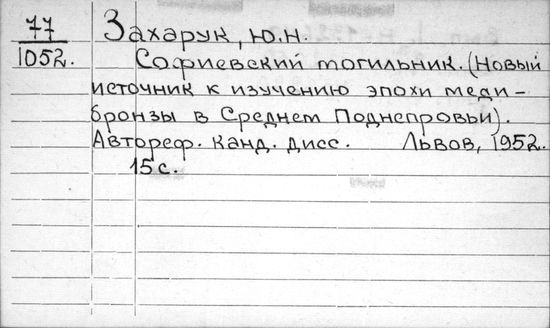 77
1052.
Захарук, Ю.Н.
Софиевский могильник. (Новый
источник к изучению эпохи меди-
бронзы в Среднем Поднепровьи).
Автореф. канд. дисс. Львов, 1952.
15 с.